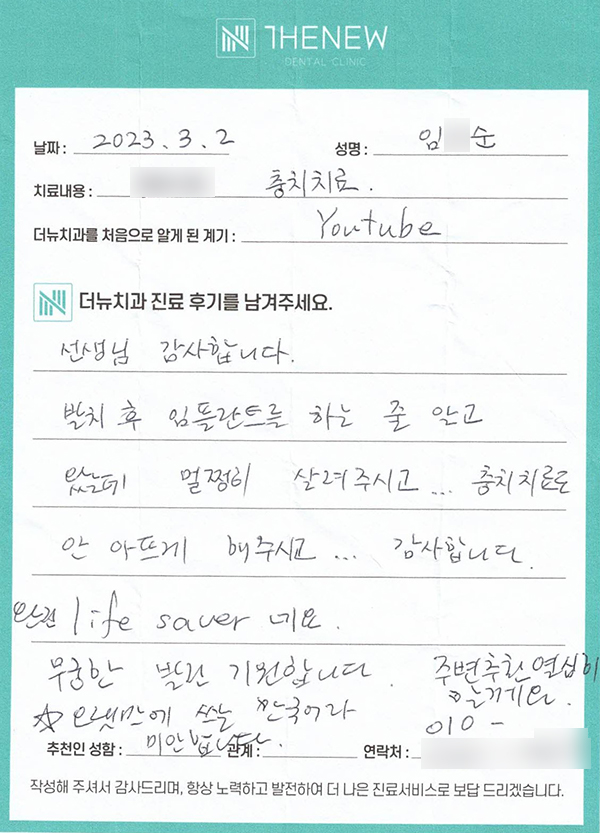 THENEW
DENTAL CLINIC
날짜 : 2023. 3. 2 성명 : 임 순
치료내용 : 충치치료.
더뉴치과를 처음으로 알게 된 계기 : Youtube
더뉴치과 진료 후기를 남겨주세요.
선생님 감사합니다.
발치 후 임플란트를 하는 줄 알고
왔는데 멀쩡히 살려주시고... 충치치료도
안 아프게 해주시고... 감사합니다.
완전 life saver 네요.
무궁한 발전 기원합니다. 주변추천 열심히
할게요.
☆ 오랫만에 쓰는 한국어라
추천인 성함 : 미안합니다. 관계 : 연락처 : 010 -
작성해 주셔서 감사드리며, 항상 노력하고 발전하여 더 나은 진료서비스로 보답 드리겠습니다.